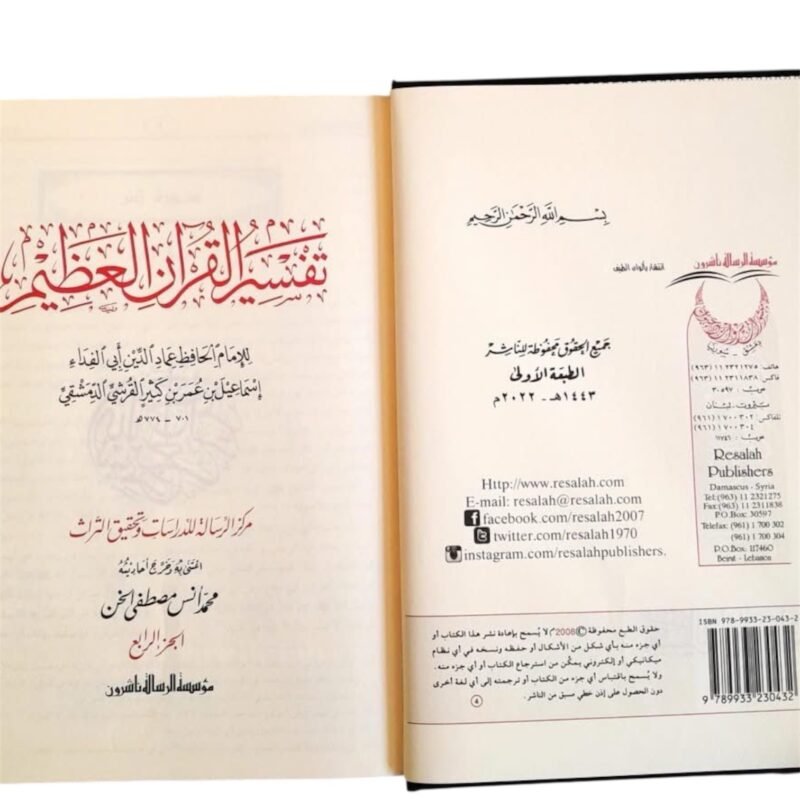 بسم الله الرحمن الرحيم
مؤسسة الرسالة ناشرون
جميع الحقوق محفوظة للناشر
الطبعة الأولى
١٤٤٣هـ - ٢٠٢٢م
دمشق - سورية
هاتف: ٢٣٢١٢٧٥ ١١ (٩٦٣)
فاكس: ٢٣١١٨٣٨ ١١ (٩٦٣)
ص.ب: ٣٠٥٩٧
بيروت - لبنان
تلفاكس: ٧٠٠٣٠٢ ١ (٩٦١)
٧٠٠٣٠٤ ١ (٩٦١)
ص.ب:
Resalah
Publishers
Damascus - Syria
Tel:(963) 11 2321275
Fax:(963) 11 2311838
P.O.Box: 30597
Telefax: (961) 1 700 302
(961) 1 700 304
P.O.Box: 117460
Beirut - Lebanon
Http://www.resalah.com
E-mail: resalah@resalah.com
facebook.com/resalah2007
twitter.com/resalah1970
instagram.com/resalahpublishers.
حقوق الطبع محفوظة © 2008م لا يُسمح بإعادة نشر هذا الكتاب أو
أي جزء منه بأي شكل من الأشكال أو حفظه ونسخه في أي نظام
ميكانيكي أو إلكتروني يمكّن من استرجاع الكتاب أو أي جزء منه.
ولا يسمح باقتباس أي جزء من الكتاب أو ترجمته إلى أي لغة أخرى
دون الحصول على إذن خطي مسبق من الناشر.
٤
ISBN 978-9933-23-043-2
9 789933 230432
تفسير القرآن العظيم
للإمام الحافظ عماد الدين أبي الفداء
إسماعيل بن عمر بن كثير القرشي الدمشقي
٧٠١ - ٧٧٤هـ
مركز الرسالة للدراسات وتحقيق التراث
اعتنى به وخرج أحاديثه
محمد أنس مصطفى الخن
الجزء الرابع
مؤسسة الرسالة ناشرون